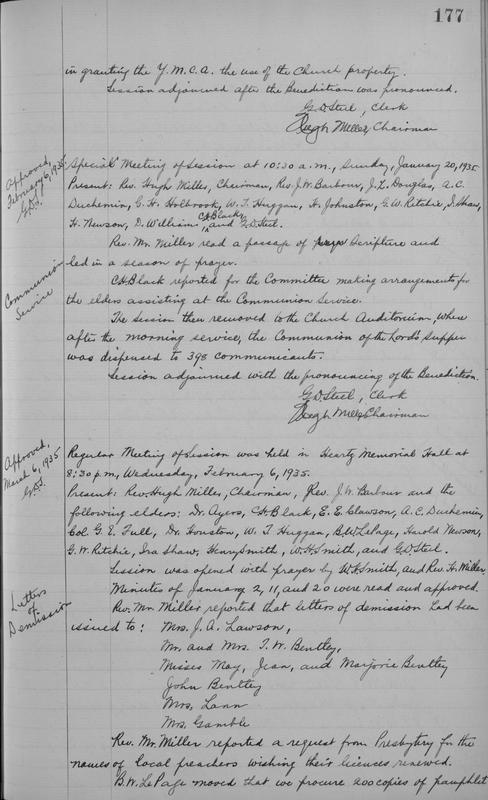 177
in granting the Y.M.C.A. the use of the Church property.
Session adjourned after the Benediction was pronounced.
G.D. Steel, Clerk
Hugh Miller, Chairman
Approved,
February 6, 1935
G.D.S.
Special Meeting of Session at 10:30 a.m., Sunday, January 20, 1935
Present: Rev. Hugh Miller, Chairman, Rev. J.W. Barbour, J.L. Douglas, A.C.
Duchemin, G.H. Holbrook, W.T. Huggan, H. Johnston, G.W. Ritchie, I. Shaw,
C.H. Black,
H. Newson, D. Williams and G.D. Steel.
Rev. Mr. Miller read a passage of Scripture and
led in a season of prayer.
Communion
Service
C.H. Black reported for the Committee making arrangements for
the elders assisting at the Communion Service.
The Session then removed to the Church Auditorium, where
after the morning service, the Communion of the Lord's Supper
was dispensed to 398 communicants.
Session adjourned with the pronouncing of the Benediction.
G.D. Steel, Clerk
Hugh Miller, Chairman
Approved,
March 6, 1935
G.D.S.
Regular Meeting of Session was held in Heartz Memorial Hall at
8:30 p.m., Wednesday, February 6, 1935.
Present: Rev. Hugh Miller, Chairman, Rev. J.W. Barbour and the
following elders: Dr. Ayers, C.H. Black, E.E. Clawson, A.C. Duchemin,
Col. G.E. Full, Dr. Houston, W.T. Huggan, B.W. LePage, Harold Newson,
G.W. Ritchie, Ira Shaw, Henry Smith, W.H. Smith, and G.D. Steel.
Session was opened with prayer by W.H. Smith, and Rev. H. Miller.
Minutes of January 2, 11, and 20 were read and approved.
Letters
of
Demission
Rev. Mr. Miller reported that letters of demission had been
issued to: Mrs. J.A. Lawson,
Mr. and Mrs. T.W. Bentley,
Misses May, Jean, and Marjorie Bentley
John Bentley
Mrs. Lann
Mrs. Gamble
Rev. Mr. Miller reported a request from Presbytery for the
names of local preachers wishing their licences renewed.
B.W. LePage moved that we procure 200 copies of pamphlet